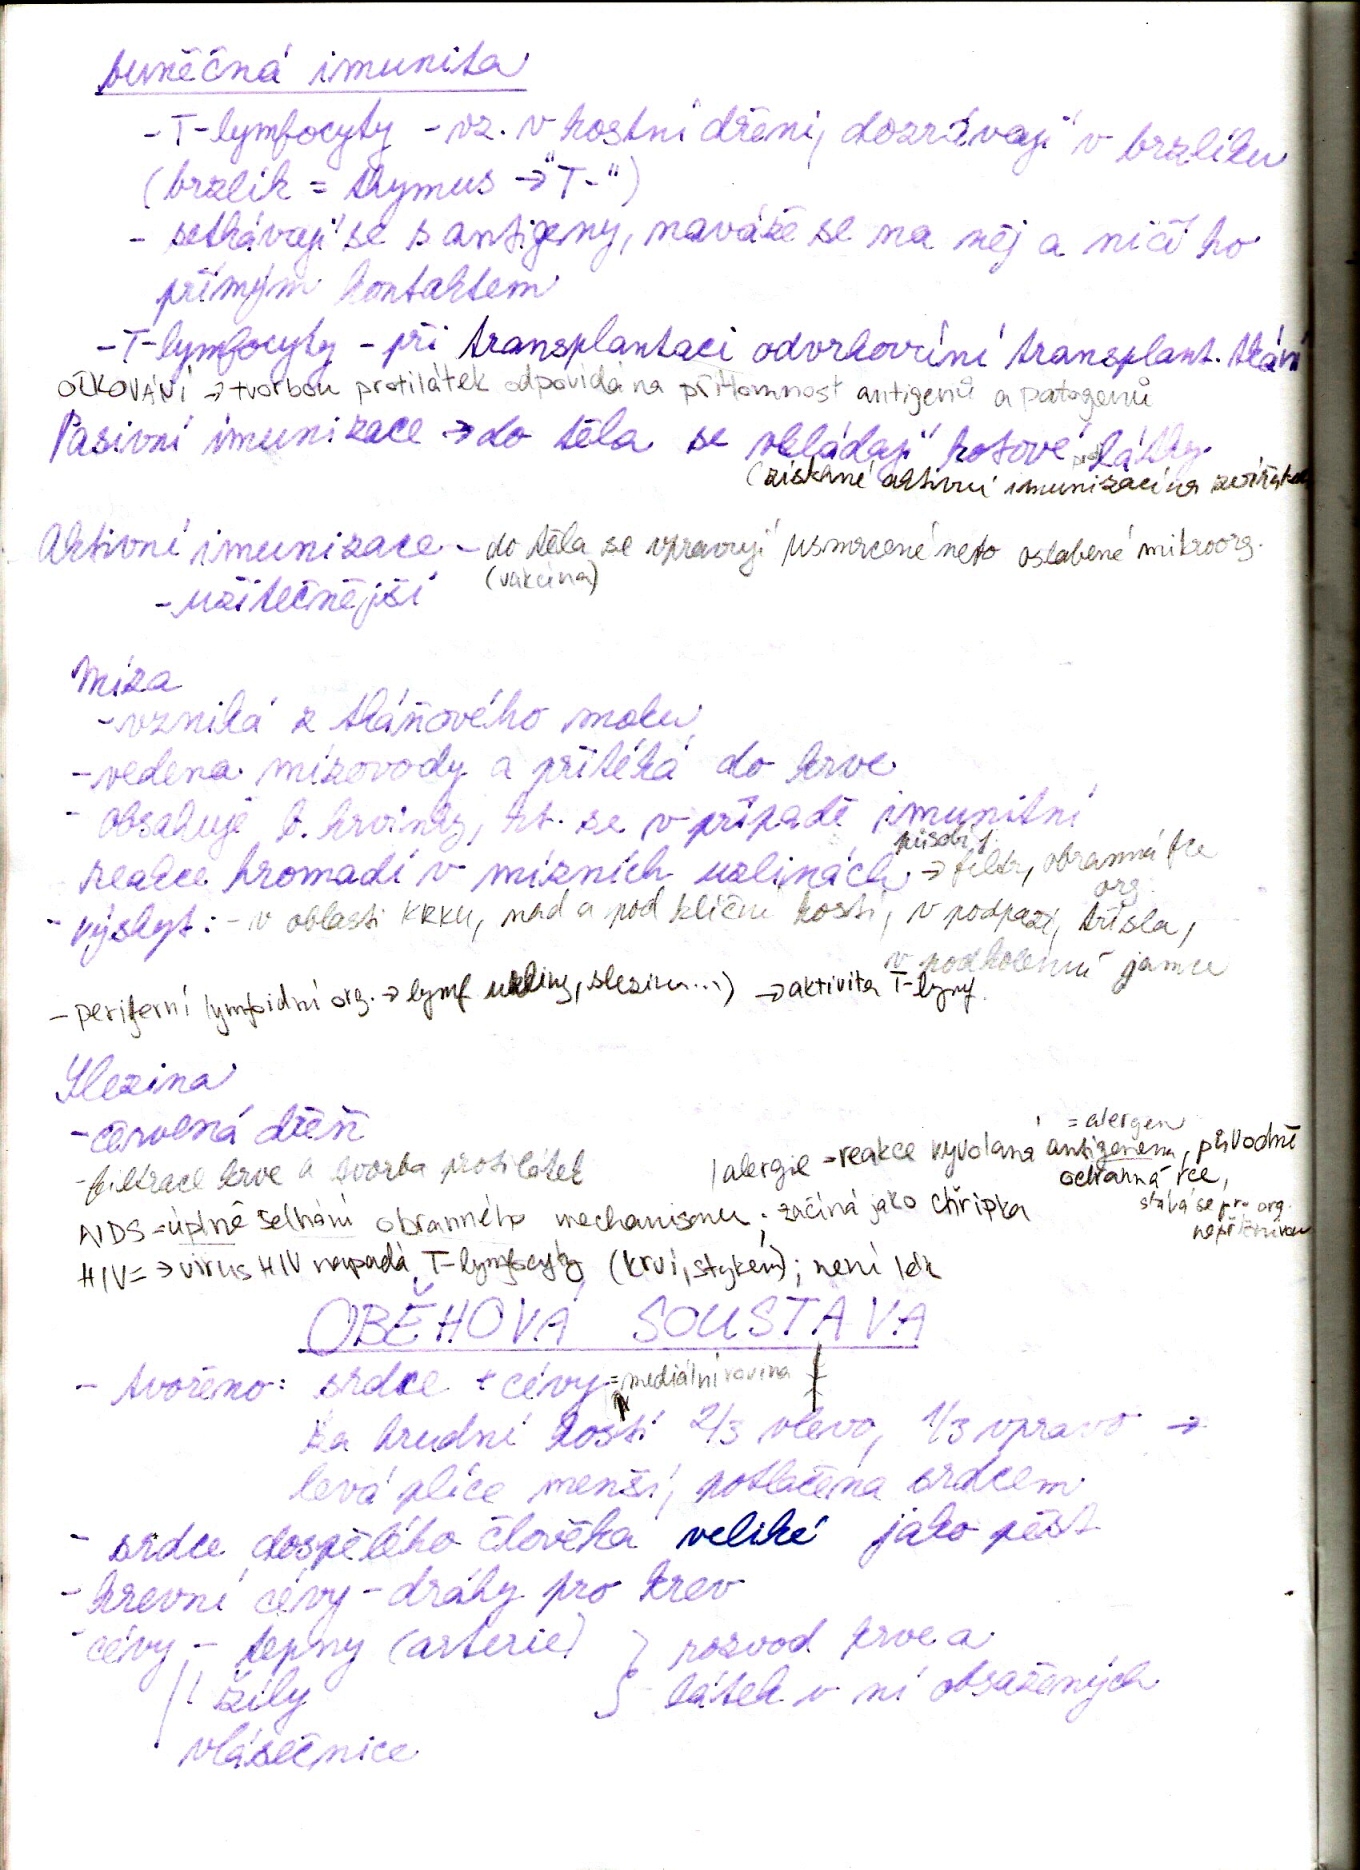 buněčná imunita
- T-lymfocyty - vz. v kostní dřeni, dozrávají v brzlíku
(brzlík = thymus → "T-")
- setkávají se s antigeny, naváže se na něj a ničí ho
přímým kontaktem
- T-lymfocyty - při transplantaci odvrhování transplant. tkání
OČKOVÁNÍ → tvorbou protilátek odpovídá na přítomnost antigenů a patogenů
Pasivní imunizace → do těla se vkládají hotové protilátky
(získané aktivní imunizací na zvířatech
Aktivní imunizace - do těla se vpravují usmrcené nebo oslabené mikroorg.
(vakcína)
- užitečnější
Míza
- vzniká z tkáňového moku
- vedena mízovody a přitéká do krve
- obsahuje b. krvinky, kt. se v případě imunitní
reakce hromadí v mízních uzlinách → působí j. filtr, obranná fce
org.
- výskyt: - v oblasti krku, nad a pod klíční kostí, v podpaží, třísla,
v podkolenní jamce
- periferní lymfoidní org. → lymf uzliny, slezina...) → aktivita T-lymf.
Slezina
- červená dřeň
- filtrace krve a tvorba protilátek
= alergen
alergie = reakce vyvolaná antigenem, původně
ochranná rce,
stává se pro org.
nepříznivou
AIDS = úplné selhání obranného mechanismu. začíná jako chřipka
HIV = → virus HIV napadá T-lymfocyty (krví, stykem); není lék
OBĚHOVÁ SOUSTAVA
- tvořeno: srdce + cévy = mediální rovina
za hrudní kostí 2/3 vlevo, 1/3 vpravo →
levá plíce menší, potlačena srdcem
- srdce dospělého člověka veliké jako pěst
- krevní cévy - dráhy pro krev
- cévy - tepny (arterie) } rozvod krve a
žíly látek v ní obsažených
vlásečnice